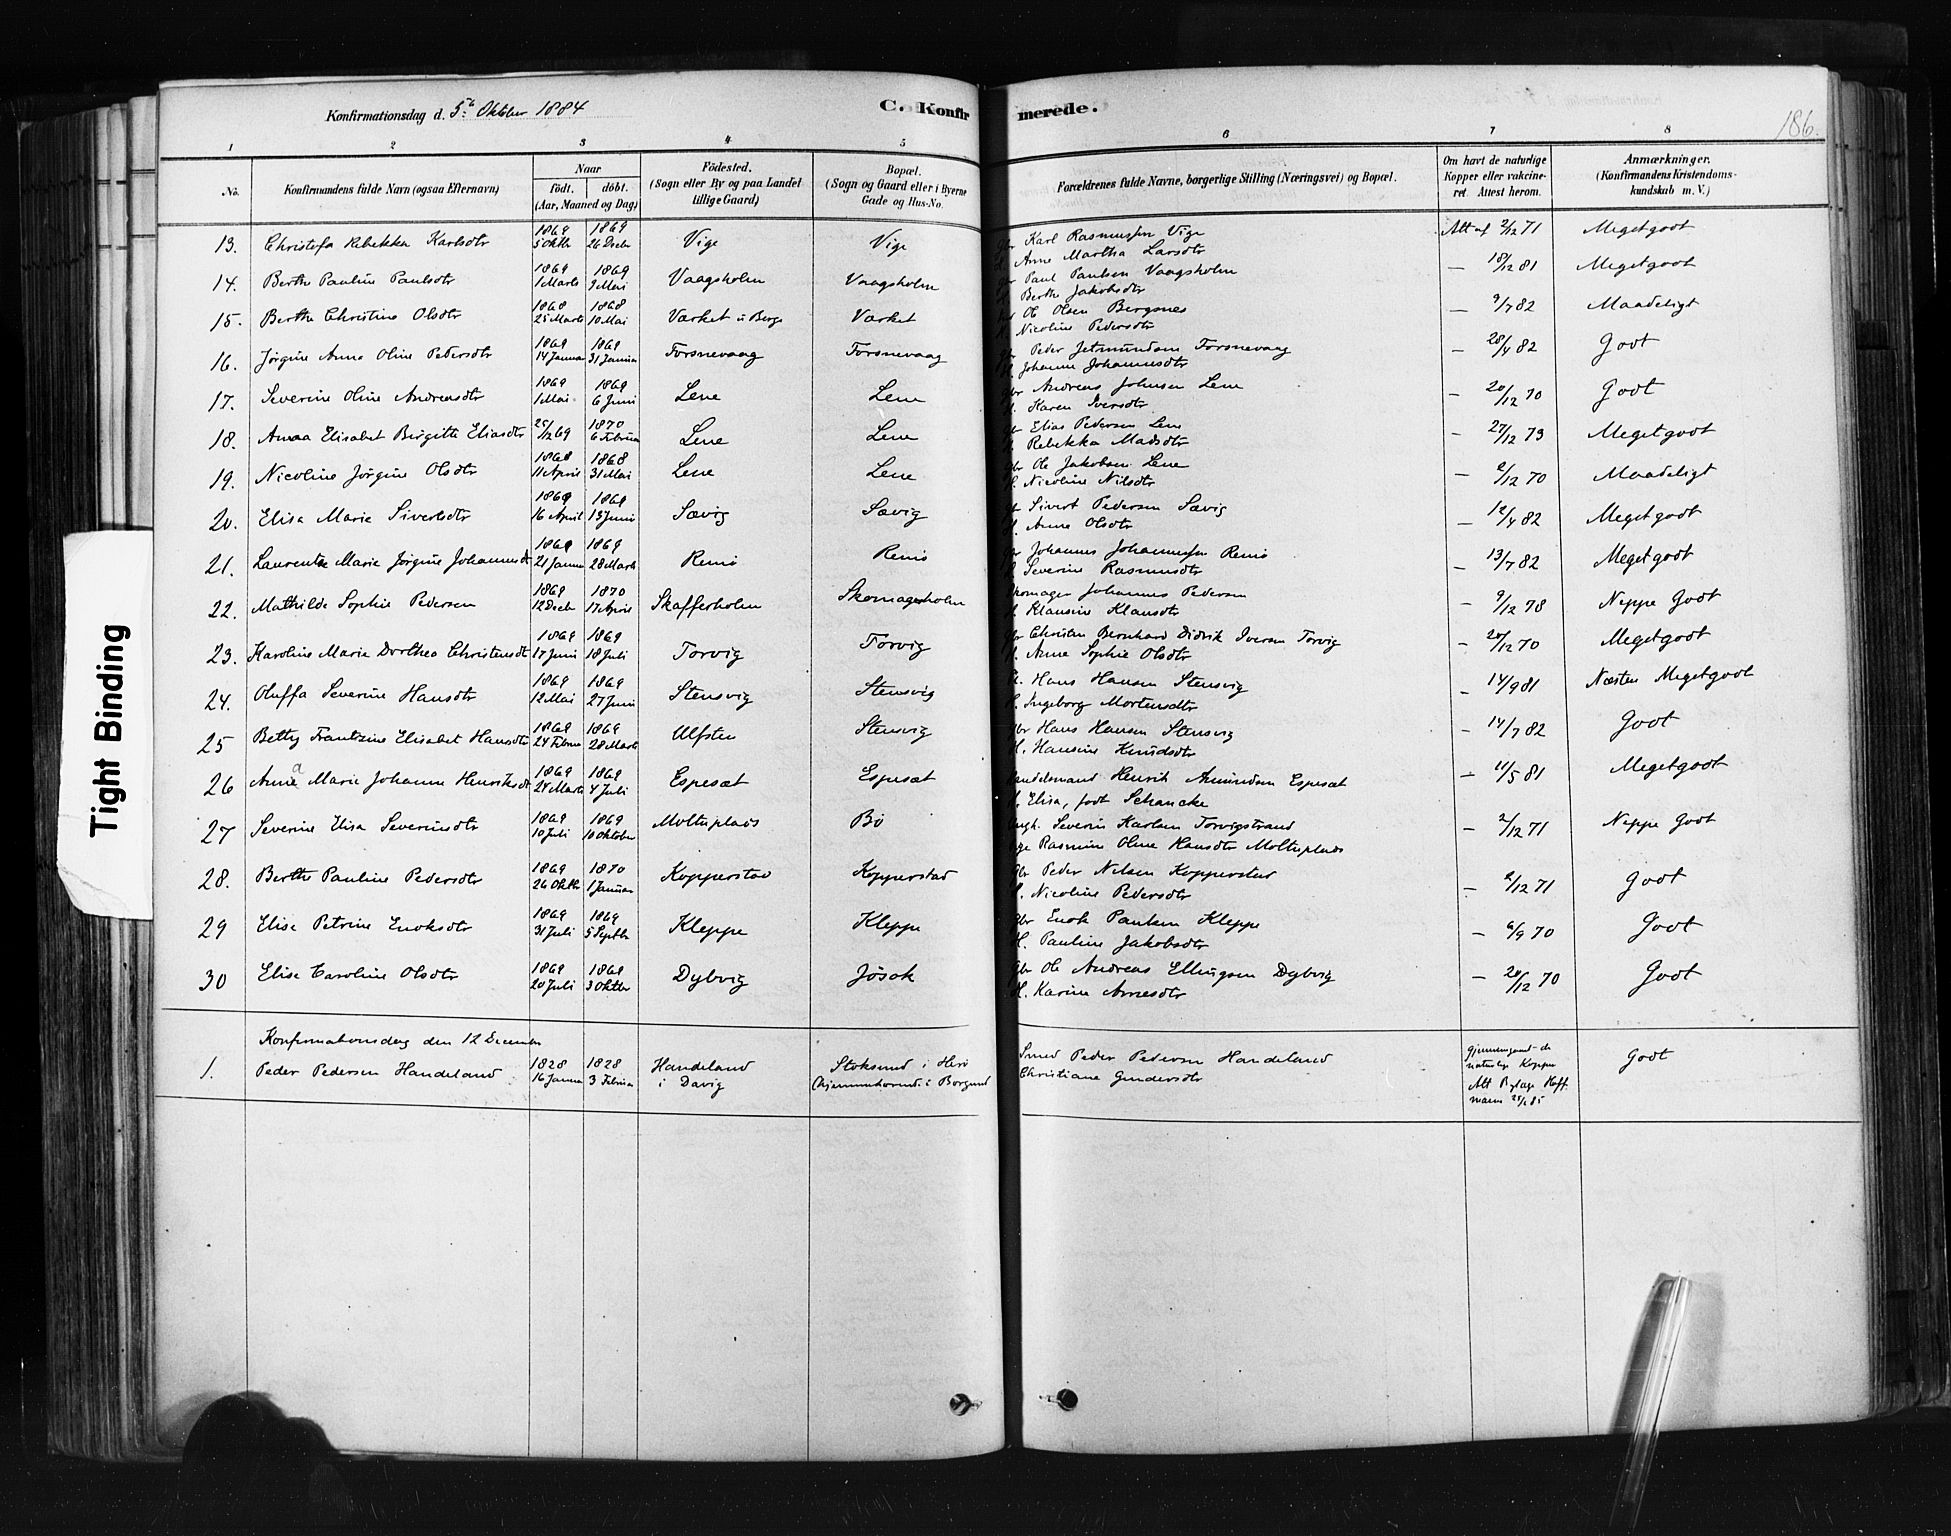 Konfirmationsdag d. 5te Oktober 1884
C. Konfirmerede.
186.
1 2 3 4 5 6 7 8
No. Konfirmandens fulde Navn (ogsaa Efternavn) Naar födt. döbt. (Aar, Maaned og Dag) Födested. (Sogn eller By og paa Landet tillige Gaard) Bopæl. (Sogn og Gaard eller i Byerne Gade og Hus-No. Forældrenes fulde Navne, borgerlige Stilling (Næringsvei) og Bopæl. Om havt de naturlige Kopper eller vakcineret. Attest herom. Anmærkninger. (Konfirmandens Kristendomskundskab m. V.)
13. Christofa Rebekka Karlsdtr 1869 5 Oktbr 1869 26 Decbr Vige Vige Gbr Karl Rasmussen Vige Att af 2/12 71 Megetgodt
H. Anne Martha Larsdtr
14. Berthe Pauline Paulsdtr 1869 1 Marts 1869 9 Mai Vaagsholm Vaagsholm Gbr Paul Paulsen Vaagsholm — 18/12 81 Megetgodt
H Berthe Jakobsdtr
15. Berthe Christine Olsdtr 1868 25 Marts 1868 10 Mai Varket i Bergs Varket Ole Olsen Bergsnes — 9/7 82 Maadeligt
H. Nicoline Pedersdtr
16. Jørgine Anna Oline Pedersdtr 1869 14 Januar 1869 31 Januar Torsnevaag Torsnevaag Gbr Peder Jetmundsen Torsnevaag — 28/4 82 Godt
H. Johanne Johannesdtr
17. Severine Oline Andreasdtr 1869 1 Mai 1869 6 Juni Lene Lene Gbr Andreas Johnsen Lene — 20/12 70 Godt
H. Karen Iversdtr
18. Anna Elisabet Birgitte Eliasdtr 25/12 69 1870 6 Februar Lene Lene Gbr Elias Pedersen Lene — 27/12 73 Megetgodt
H Rebekka Madsdtr
19. Nicoline Jørgine Olsdtr 1868 11 April 1868 31 Mai Lene Lene Gbr Ole Jakobsen Lene — 2/12 70 Maadeligt
H. Nicoline Nilsdtr
20. Elisa Marie Sivertsdtr 1869 16 April 1869 13 Juni Sævig Sævig Sivert Pedersen Sævig — 12/4 82 Megetgodt
H. Anne Olsdtr
21. Laurentze Marie Jørgine Johannesdt 1869 21 Januar 1869 28 Marts Remø Remø Gbr Johannes Johannessen Remø — 13/7 82 Megetgodt
H Severine Rasmusdtr
22. Mathilde Sophie Pedersen 1869 12 Decbr 1870 17 April Skafferholm Skomagerholm Skomager Johannes Pedersen — 9/12 78 Neppe Godt
H Klausine Klausdtr
23. Karoline Marie Dorthea Christensdt 1869 17 Juni 1869 18 Juli Torvig Torvig Gbr Christen Bernhard Didrik Iversen Torvig — 20/12 70 Megetgodt
H. Anne Sophie Olsdtr
24. Oluffa Severine Hansdtr 1869 12 Mai 1869 27 Juni Stensvig Stensvig Hans Hansen Stensvig — 14/9 81 Næsten Megetgodt
H. Ingeborg Mortensdtr
25 Betty Frantzine Elisabet Hansdtr 1869 24 Februar 1869 28 Marts Ulfsten Stensvig Gbr Hans Hansen Stensvig — 14/7 82 Godt
H. Hansine Knudsdtr
26 Anna Marie Johanne Henriksdt 1869 24 Marts 1869 4 Juli Espesæt Espesæt Handelsmand Henrik Amundsen Espesæt — 11/5 81 Megetgodt
H. Elisa, født Schancke
27 Severine Elisa Severinsdtr 1869 10 Juli 1869 10 Oktober Moltuplads Bø Ungk. Severin Karlsen Torvigstrand — 2/12 71 Neppe Godt
Pige Rasmine Oline Hansdtr Moltuplads
28. Berthe Pauline Pedersdtr 1869 26 Oktbr 1870 1 Januar Kopperstad Kopperstad Gbr Peder Nilsen Kopperstad — 2/12 71 Godt
H. Nicoline Pedersdtr
29 Elise Petrine Enoksdtr 1869 31 Juli 1869 5 Septbr Kleppe Kleppe Gbr Enok Paulsen Kleppe — 6/9 70 Godt
H. Pauline Jakobsdtr
30 Elise Caroline Olsdtr 1869 20 Juli 1869 3 Oktbr Dybvig Jøsok Gbr Ole Andreas Ellingsen Dybvig — 20/12 70 Godt
H. Karine Arnesdtr
Konfirmationsdag den 12 December
1. Peder Pedersen Handeland 1828 16 Januar 1828 3 Februar Handeland i Davig Stoksund i Herø (hjemmehørende i Borgund Smed Peder Pedersen Handeland Christiane Gundersdtr gjennemgaaet de naturlige Kopper Att Bylæge Hoffmann 25/2 85 Godt
Tight Binding